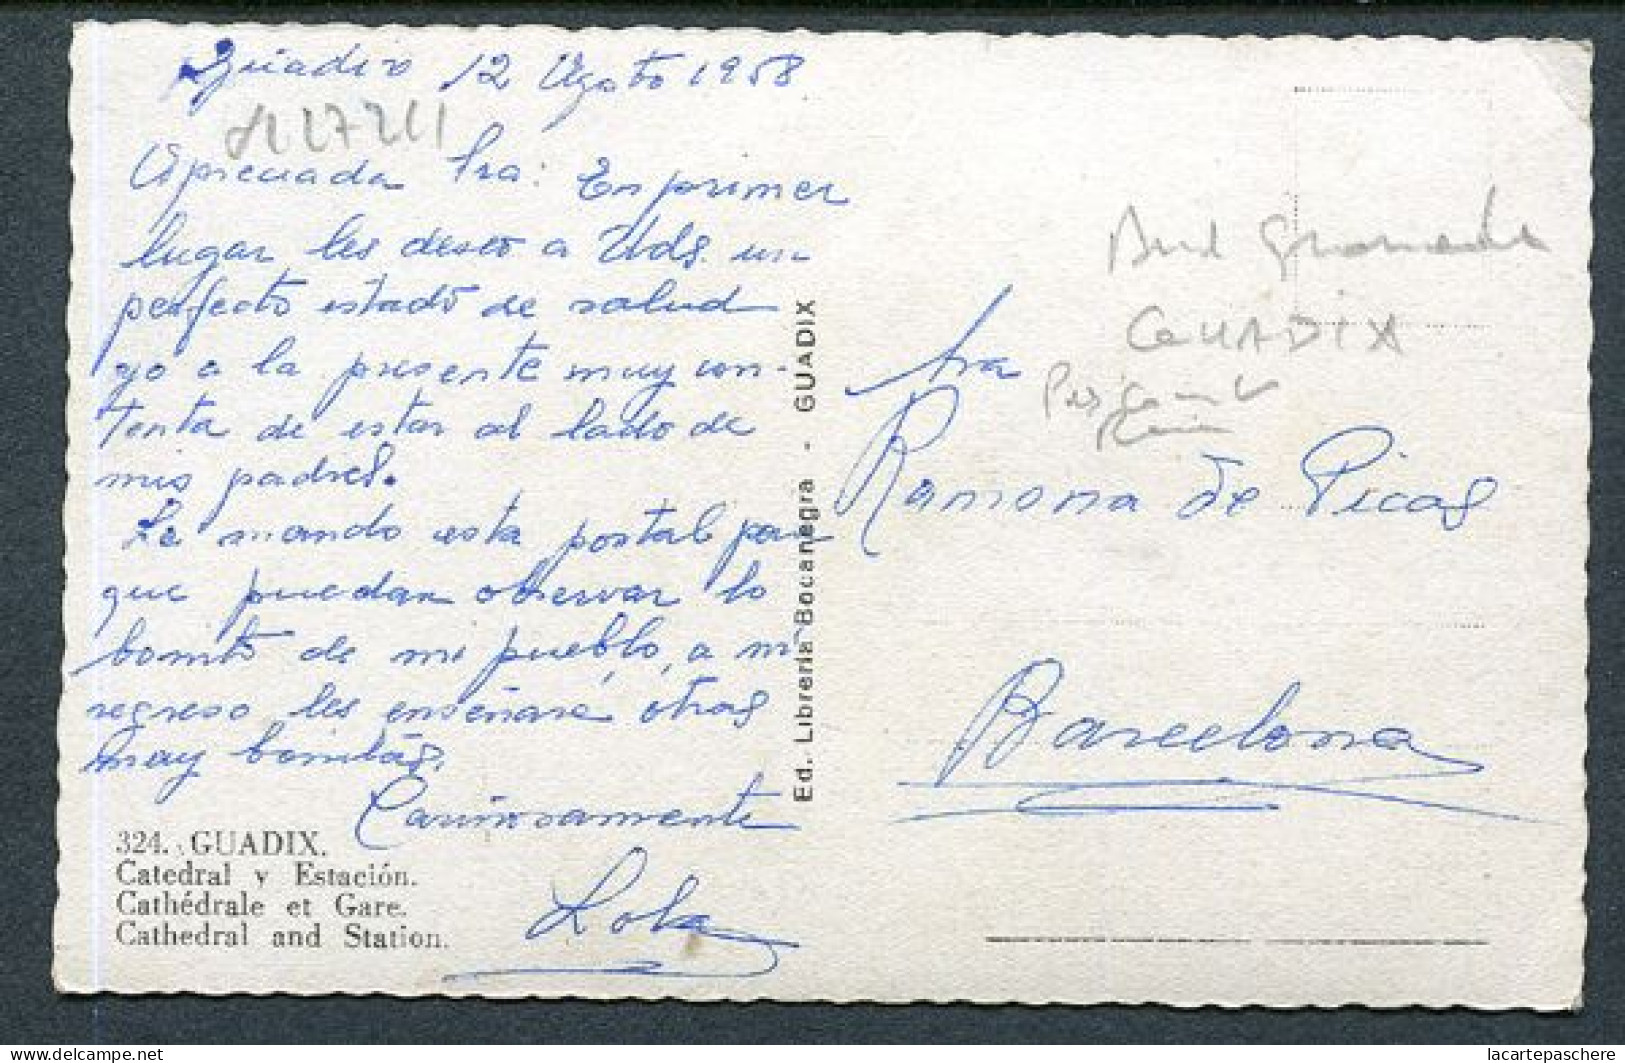 Guadix 12 Agosto 1958
Apreciada Sra: En primer
lugar les deseo a Uds. un
perfecto estado de salud
yo a la presente muy con-
tenta de estar al lado de
mis padres.
Le mando esta postal para
que puedan observar lo
bonito de mi pueblo, a mi
regreso les enseñaré otras
muy bonitas.
Cariñosamente
Lola
324. GUADIX.
Catedral y Estación.
Cathédrale et Gare.
Cathedral and Station.
Ed. Librería Bocanegra - GUADIX
GUADIX
Sra
Ramona de Picas
Barcelona
lacartepaschere
delcampe.net